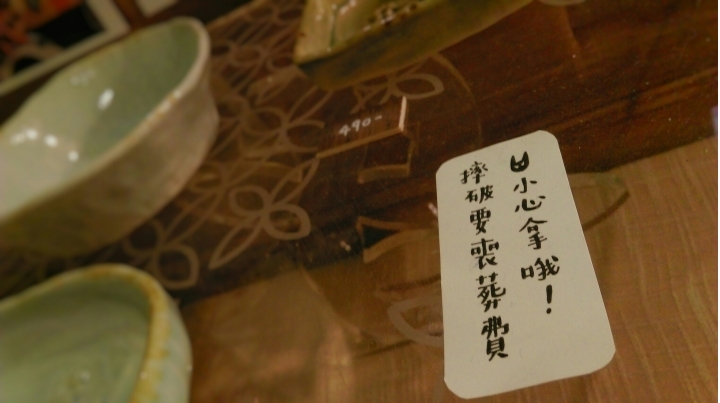 小心拿哦!
摔破要喪葬費
490-